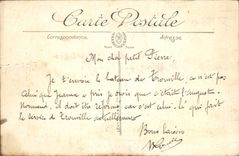 Carte Postale
Correspondance
Adresse
Mon cher petit Pierre,
Je t'envoie le bateau de Trouville, ce n'est pas
celui que Jeanne a pris je crois que c'était l'Augustin
Normand, il doit être réformé car c'est celui-là qui fait
le service de Trouville actuellement
Bons baisers